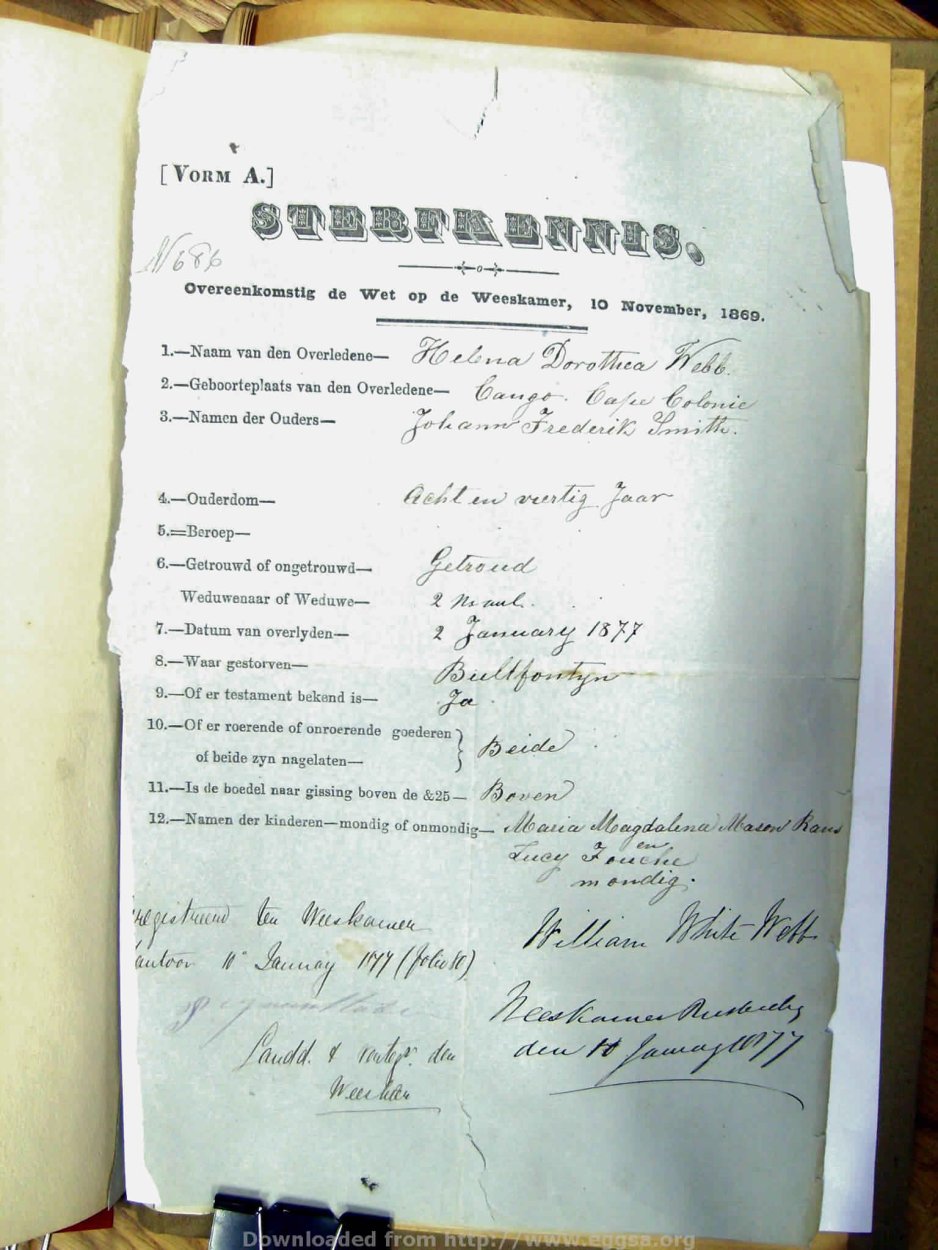 [VORM A.]
STERFKENNIS.
N 686
Overeenkomstig de Wet op de Weeskamer, 10 November, 1869.
1.—Naam van den Overledene— Helena Dorothea Webb.
2.—Geboorteplaats van den Overledene— Cango. Cape Colonie
3.—Namen der Ouders— Johann Frederik Smith.
4.—Ouderdom— Acht en viertig Jaar
5.=Beroep—
6.—Getrouwd of ongetrouwd— Getroud
Weduwenaar of Weduwe— 2 Maal.
7.—Datum van overlyden— 2 January 1877
8.—Waar gestorven— Bultfontyn
9.—Of er testament bekend is— Ja
10.—Of er roerende of onroerende goederen
of beide zyn nagelaten— Beide
11.—Is de boedel naar gissing boven de &25— Boven
12.—Namen der kinderen—mondig of onmondig— Maria Magdalena Mason
en
Lucy Fouche
mondig.
William White Webb
ten Weeskamer
10 January 1877 (folio 80)
Weeskamer Rustenburg
den 10 January 1877
Landd. & den
Weesheer
Downloaded from http://www.eggsa.org